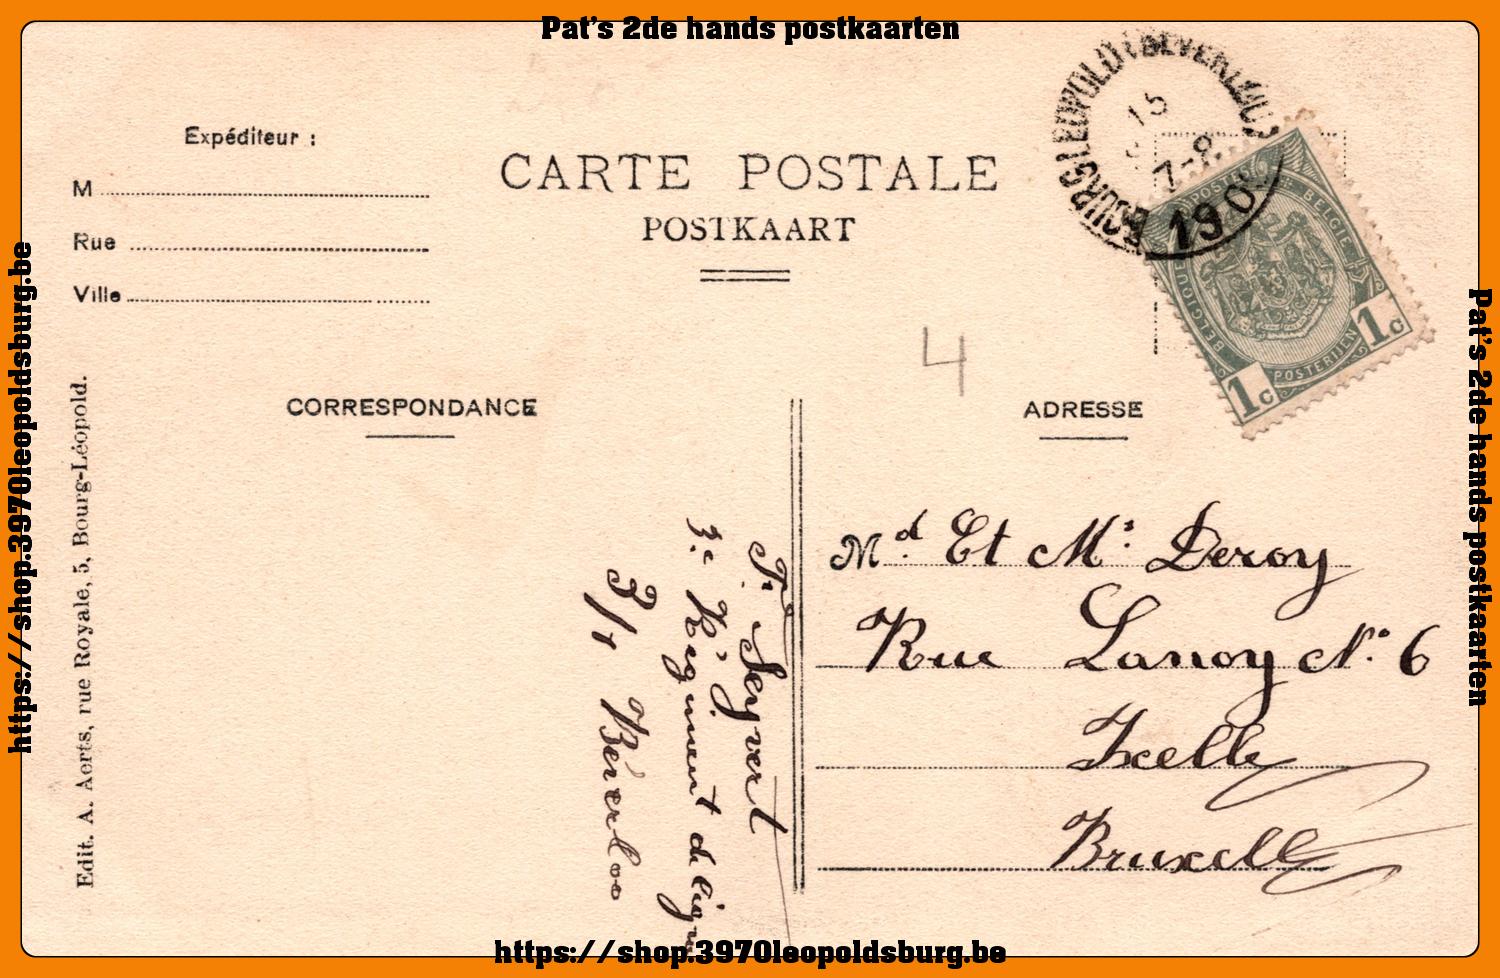 Pat's 2de hands postkaarten
BOURG-LEOPOLD (BEVERLOO)
15
7-8
190
Expéditeur :
M
Rue
Ville
CARTE POSTALE
POSTKAART
BELGIQUE POSTES BELGIE
POSTERIJEN
1c 1c
4
CORRESPONDANCE
ADRESSE
Edit. A. Aerts, rue Royale, 5, Bourg-Léopold.
3e Régiment de ligne
3/1 Béverloo
Md. Et Mr. Deroy
Rue Lanoy No. 6
Ixelle
Bruxelle
https://shop.3970leopoldsburg.be
Pat's 2de hands postkaarten
https://shop.3970leopoldsburg.be